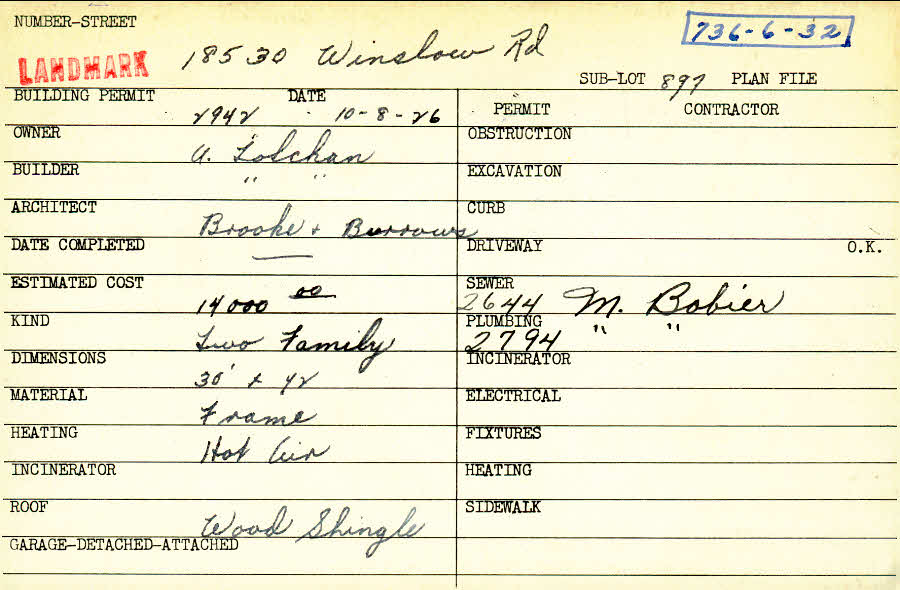 NUMBER-STREET
736-6-32
18530 Winslow Rd
LANDMARK
SUB-LOT 897 PLAN FILE
BUILDING PERMIT 2942 DATE 10-8-26
PERMIT CONTRACTOR
OWNER A.
OBSTRUCTION
BUILDER " "
EXCAVATION
ARCHITECT Brooke + Burrows
CURB
DATE COMPLETED —
DRIVEWAY O.K.
ESTIMATED COST 14000 00
SEWER 2644 M. Bobier
KIND Two Family
PLUMBING 2794 " "
DIMENSIONS 30' x 42
INCINERATOR
MATERIAL Frame
ELECTRICAL
HEATING Hot Air
FIXTURES
INCINERATOR
HEATING
ROOF Wood Shingle
SIDEWALK
GARAGE-DETACHED-ATTACHED